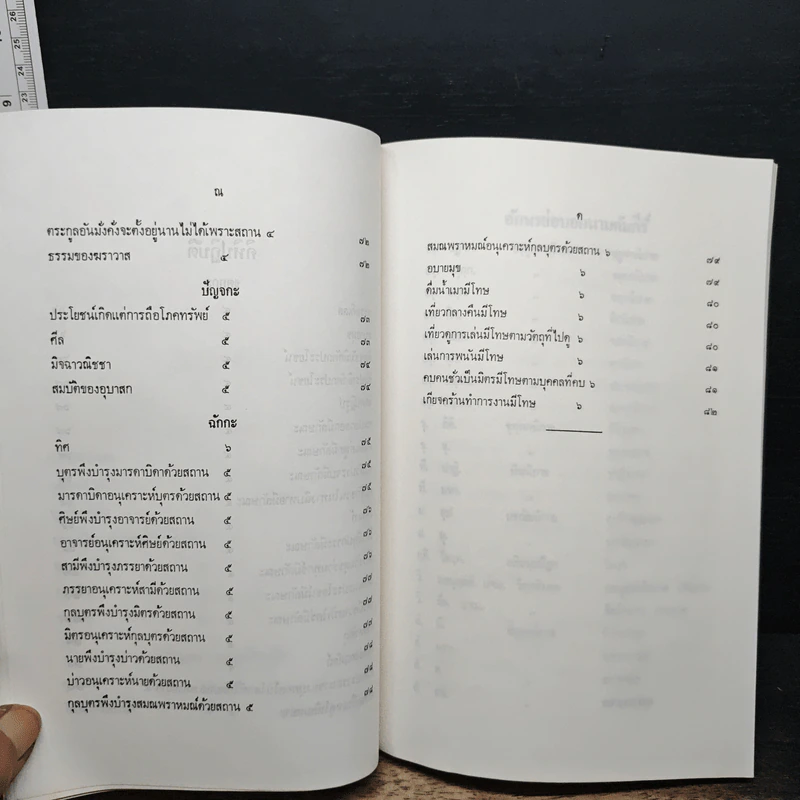 ณ
ตระกูลอันมั่งคั่งจะตั้งอยู่นานไม่ได้เพราะสถาน ๔ ๗๒
ธรรมของฆราวาส ๔ ๗๒
ปัญจกะ
ประโยชน์เกิดแต่การถือโภคทรัพย์ ๕ ๗๓
ศีล ๕ ๗๓
มิจฉาวณิชชา ๕ ๗๔
สมบัติของอุบาสก ๕ ๗๔
ฉักกะ
ทิศ ๖ ๗๕
บุตรพึงบำรุงมารดาบิดาด้วยสถาน ๕ ๗๕
มารดาบิดาอนุเคราะห์บุตรด้วยสถาน ๕ ๗๕
ศิษย์พึงบำรุงอาจารย์ด้วยสถาน ๕ ๗๖
อาจารย์อนุเคราะห์ศิษย์ด้วยสถาน ๕ ๗๖
สามีพึงบำรุงภรรยาด้วยสถาน ๕ ๗๖
ภรรยาอนุเคราะห์สามีด้วยสถาน ๕ ๗๗
กุลบุตรพึงบำรุงมิตรด้วยสถาน ๕ ๗๗
มิตรอนุเคราะห์กุลบุตรด้วยสถาน ๕ ๗๗
นายพึงบำรุงบ่าวด้วยสถาน ๕ ๗๘
บ่าวอนุเคราะห์นายด้วยสถาน ๕ ๗๘
กุลบุตรพึงบำรุงสมณพราหมณ์ด้วยสถาน ๕ ๗๘
ด
สมณพราหมณ์อนุเคราะห์กุลบุตรด้วยสถาน ๖ ๗๙
อบายมุข ๖ ๗๙
ดื่มน้ำเมามีโทษ ๖ ๘๐
เที่ยวกลางคืนมีโทษ ๖ ๘๐
เที่ยวดูการเล่นมีโทษตามวัตถุที่ไปดู ๖ ๘๐
เล่นการพนันมีโทษ ๖ ๘๑
คบคนชั่วเป็นมิตรมีโทษตามบุคคลที่คบ ๖ ๘๑
เกียจคร้านทำการงานมีโทษ ๖ ๘๒